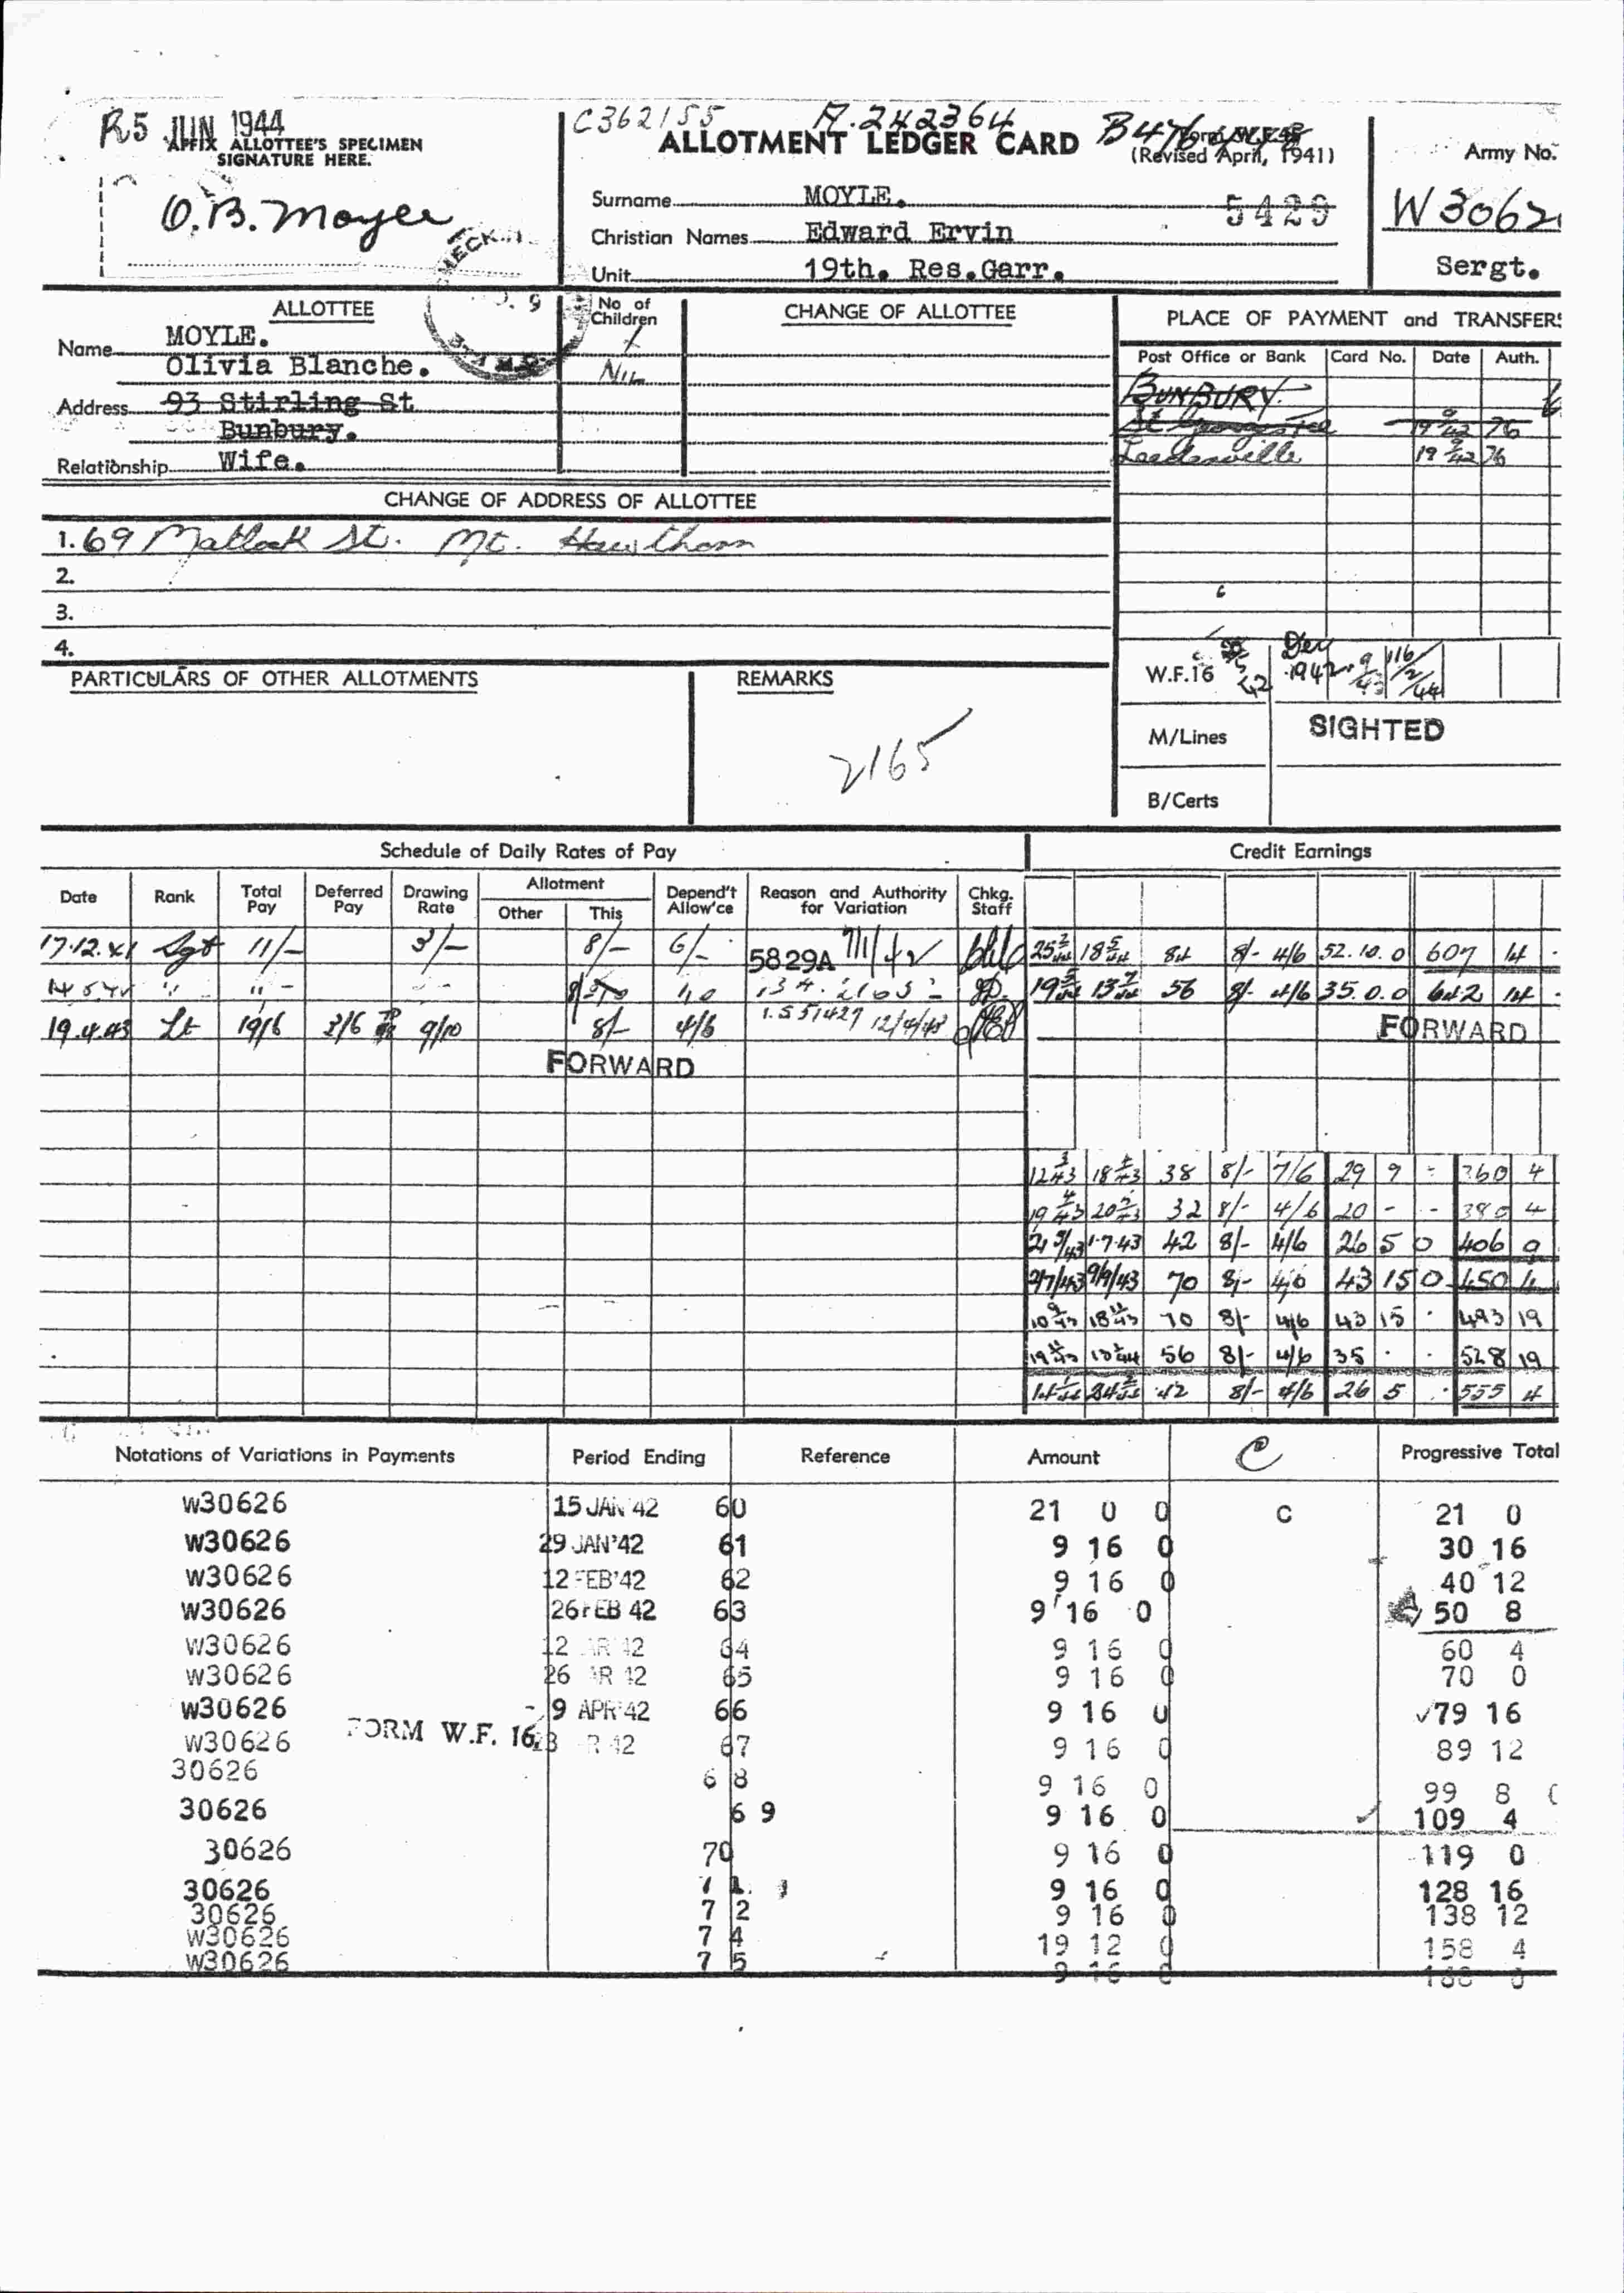 R5 JUN 1944
AFFIX ALLOTTEE'S SPECIMEN
SIGNATURE HERE.
O.B. Moyle
C362155 A.242364
ALLOTMENT LEDGER CARD
(Revised April, 1941)
Army No.
W 3062
Surname MOYLE.
5429
Christian Names Edward Ervin
Unit 19th. Res.Garr.
Sergt.
ALLOTTEE
Name MOYLE.
Olivia Blanche.
Address 93 Stirling St
Bunbury.
Relationship Wife.
No of
Children
Nil
CHANGE OF ALLOTTEE
PLACE OF PAYMENT and TRANSFERS
Post Office or Bank Card No. Date Auth.
BUNBURY
St Georges Tce 19 9/42 76
Leederville 19 9/42 76
CHANGE OF ADDRESS OF ALLOTTEE
1. 69 Matlock St. Mt. Hawthorn
2.
3.
4.
PARTICULARS OF OTHER ALLOTMENTS
REMARKS
2165
W.F.16 Dec 1942
M/Lines SIGHTED
B/Certs
Schedule of Daily Rates of Pay
Credit Earnings
Date Rank Total Pay Deferred Pay Drawing Rate Allotment Other This Depend't Allow'ce Reason and Authority for Variation Chkg. Staff
17.12.41 Sgt 11/- 3/- 8/- 6/- 5829A 7/1/42
19.4.43 Lt 19/6 9/10 8/- 4/6 12/4/43
FORWARD
84 8/- 4/6 52.10.0 607 14 -
56 8/- 4/6 35.0.0 642 14 -
FORWARD
12 3/43 18 4/43 38 8/- 7/6 29 9 - 360 4
19 4/43 20 5/43 32 8/- 4/6 20 - - 380 4
21 5/43 1.7.43 42 8/- 4/6 26 5 0 406 9
2/7/43 9/9/43 70 8/- 4/6 43 15 0 450 4
10 9/43 18 11/43 70 8/- 4/6 43 15 - 493 19
56 8/- 4/6 35 - - 528 19
42 8/- 4/6 26 5 - 555 4
Notations of Variations in Payments Period Ending Reference Amount Progressive Total
W30626 15 JAN '42 60 21 0 0 C 21 0
W30626 29 JAN '42 61 9 16 0 30 16
W30626 12 FEB '42 62 9 16 0 40 12
W30626 26 FEB 42 63 9 16 0 50 8
W30626 12 AR '42 64 9 16 0 60 4
W30626 26 AR 42 65 9 16 0 70 0
W30626 9 APR '42 66 9 16 0 79 16
FORM W.F. 16
W30626 R 42 67 9 16 0 89 12
30626 68 9 16 0 99 8
30626 69 9 16 0 109 4
30626 70 9 16 0 119 0
30626 71 9 16 0 128 16
30626 72 9 16 0 138 12
W30626 74 19 12 0 158 4
W30626 75 9 16 0